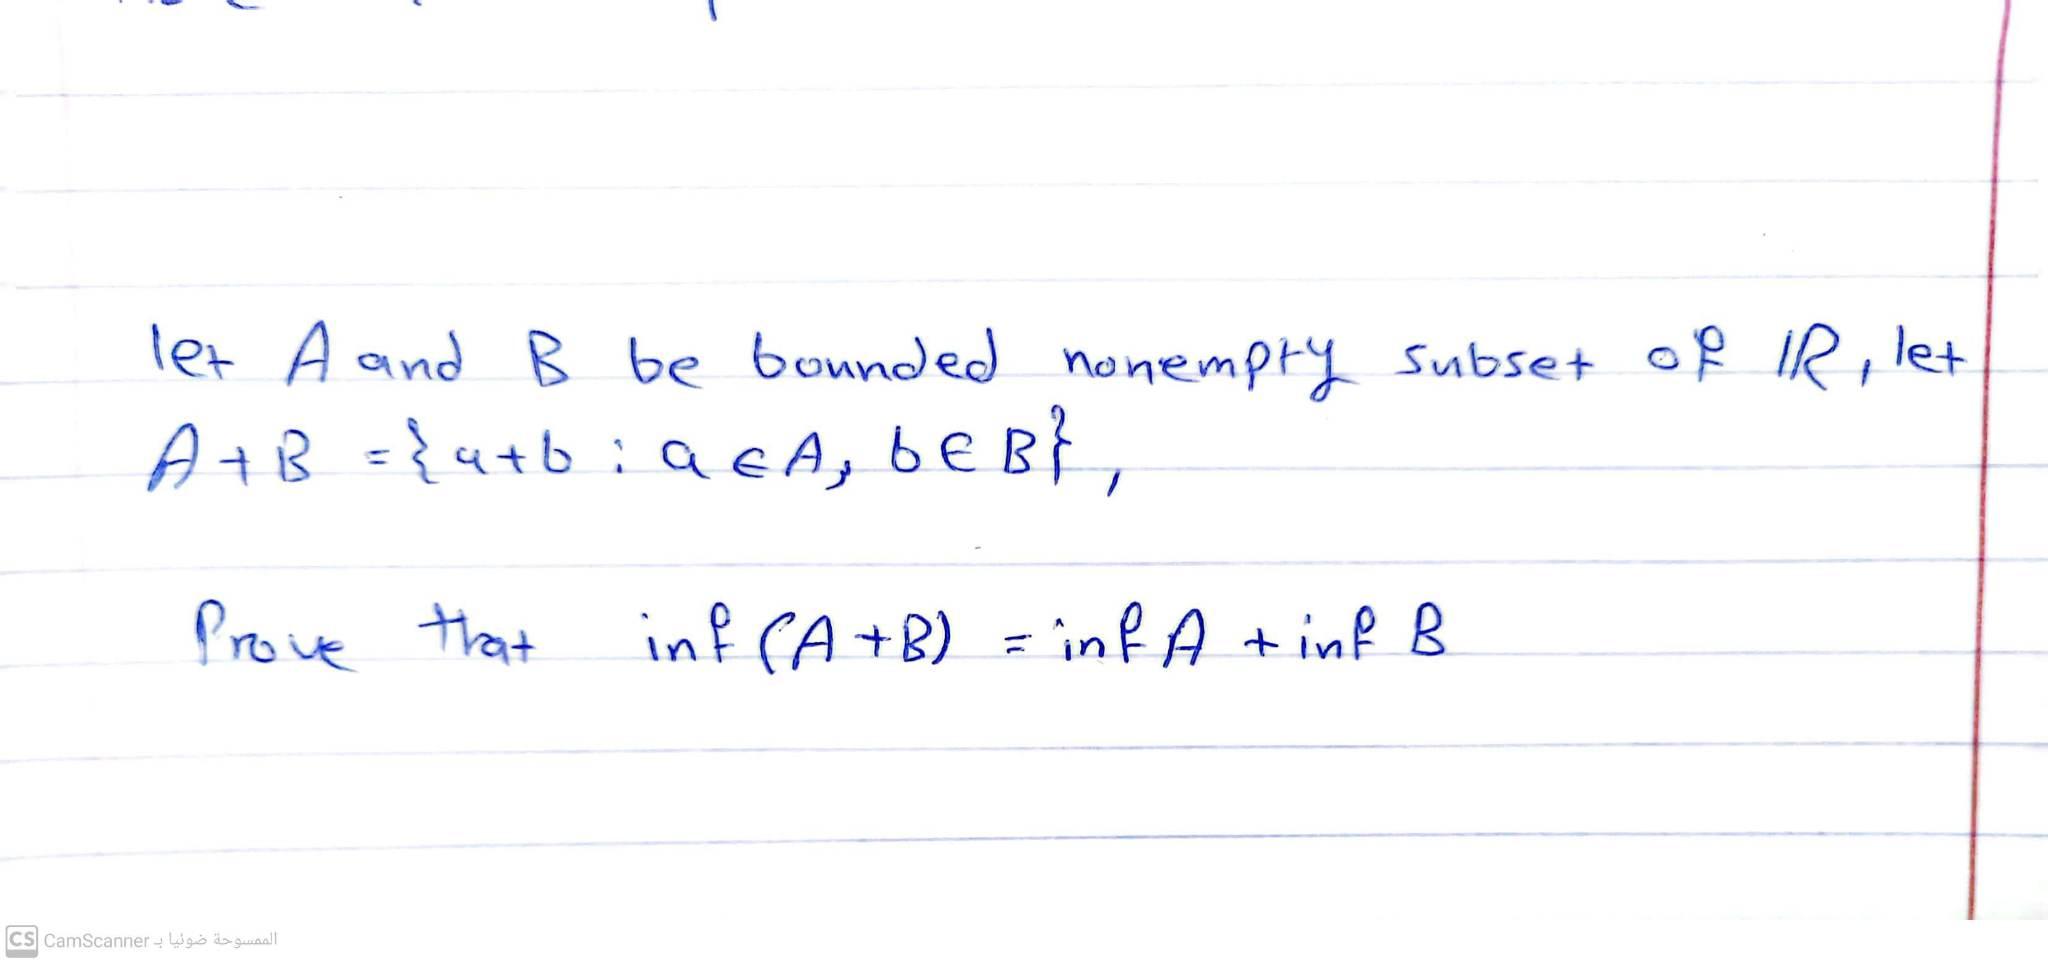 let A and B be bounded nonempty subset of IR, let
A+B = {a+b : a ∈ A, b ∈ B},
Prove that inf (A+B) = inf A + inf B
CS CamScanner الممسوحة ضوئيا بـ